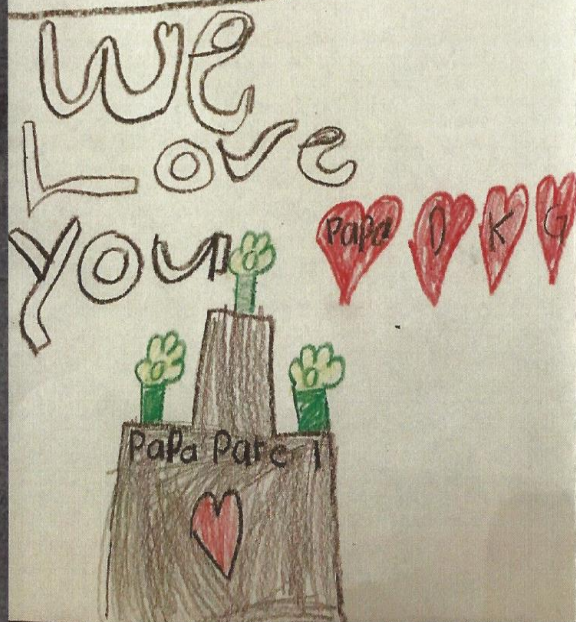 We
Love
You
Papa D K G
Papa Parc 1